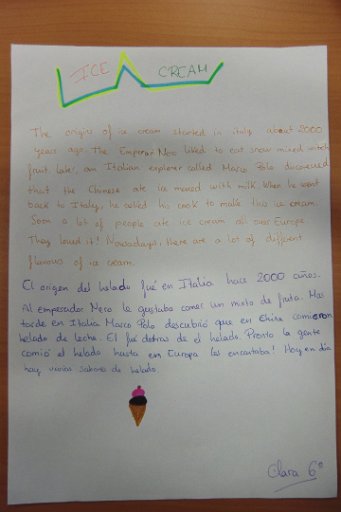 ICE CREAM
The origins of ice cream started in italy about 2000
years ago. The Emperor Nero liked to eat snow mixed with
fruit. Later, an Italian explorer called Marco Polo discovered
that the Chinese ate ice mixed with milk. When he went
back to Italy, he asked his cook to make this ice cream.
Soon a lot of people ate ice cream all over Europe.
They loved it! Nowadays, there are a lot of different
flavours of ice cream.
El origen del helado fué en Italia hace 2000 años.
Al emperador Nero le gustaba comer un mixto de fruta. Mas
tarde en Italia Marco Polo descubrió que en China comieron
helado de leche. El fué detras de el helado. Pronto la gente
comió el helado hasta en Europa ¡les encantaba! Hoy en día
hay varios sabores de helado.
Clara 6º